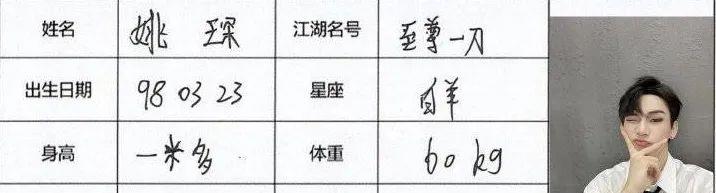 姓名 姚琛 江湖名号 至尊一刀
出生日期 98 03 23 星座 白羊
身高 一米多 体重 60 kg